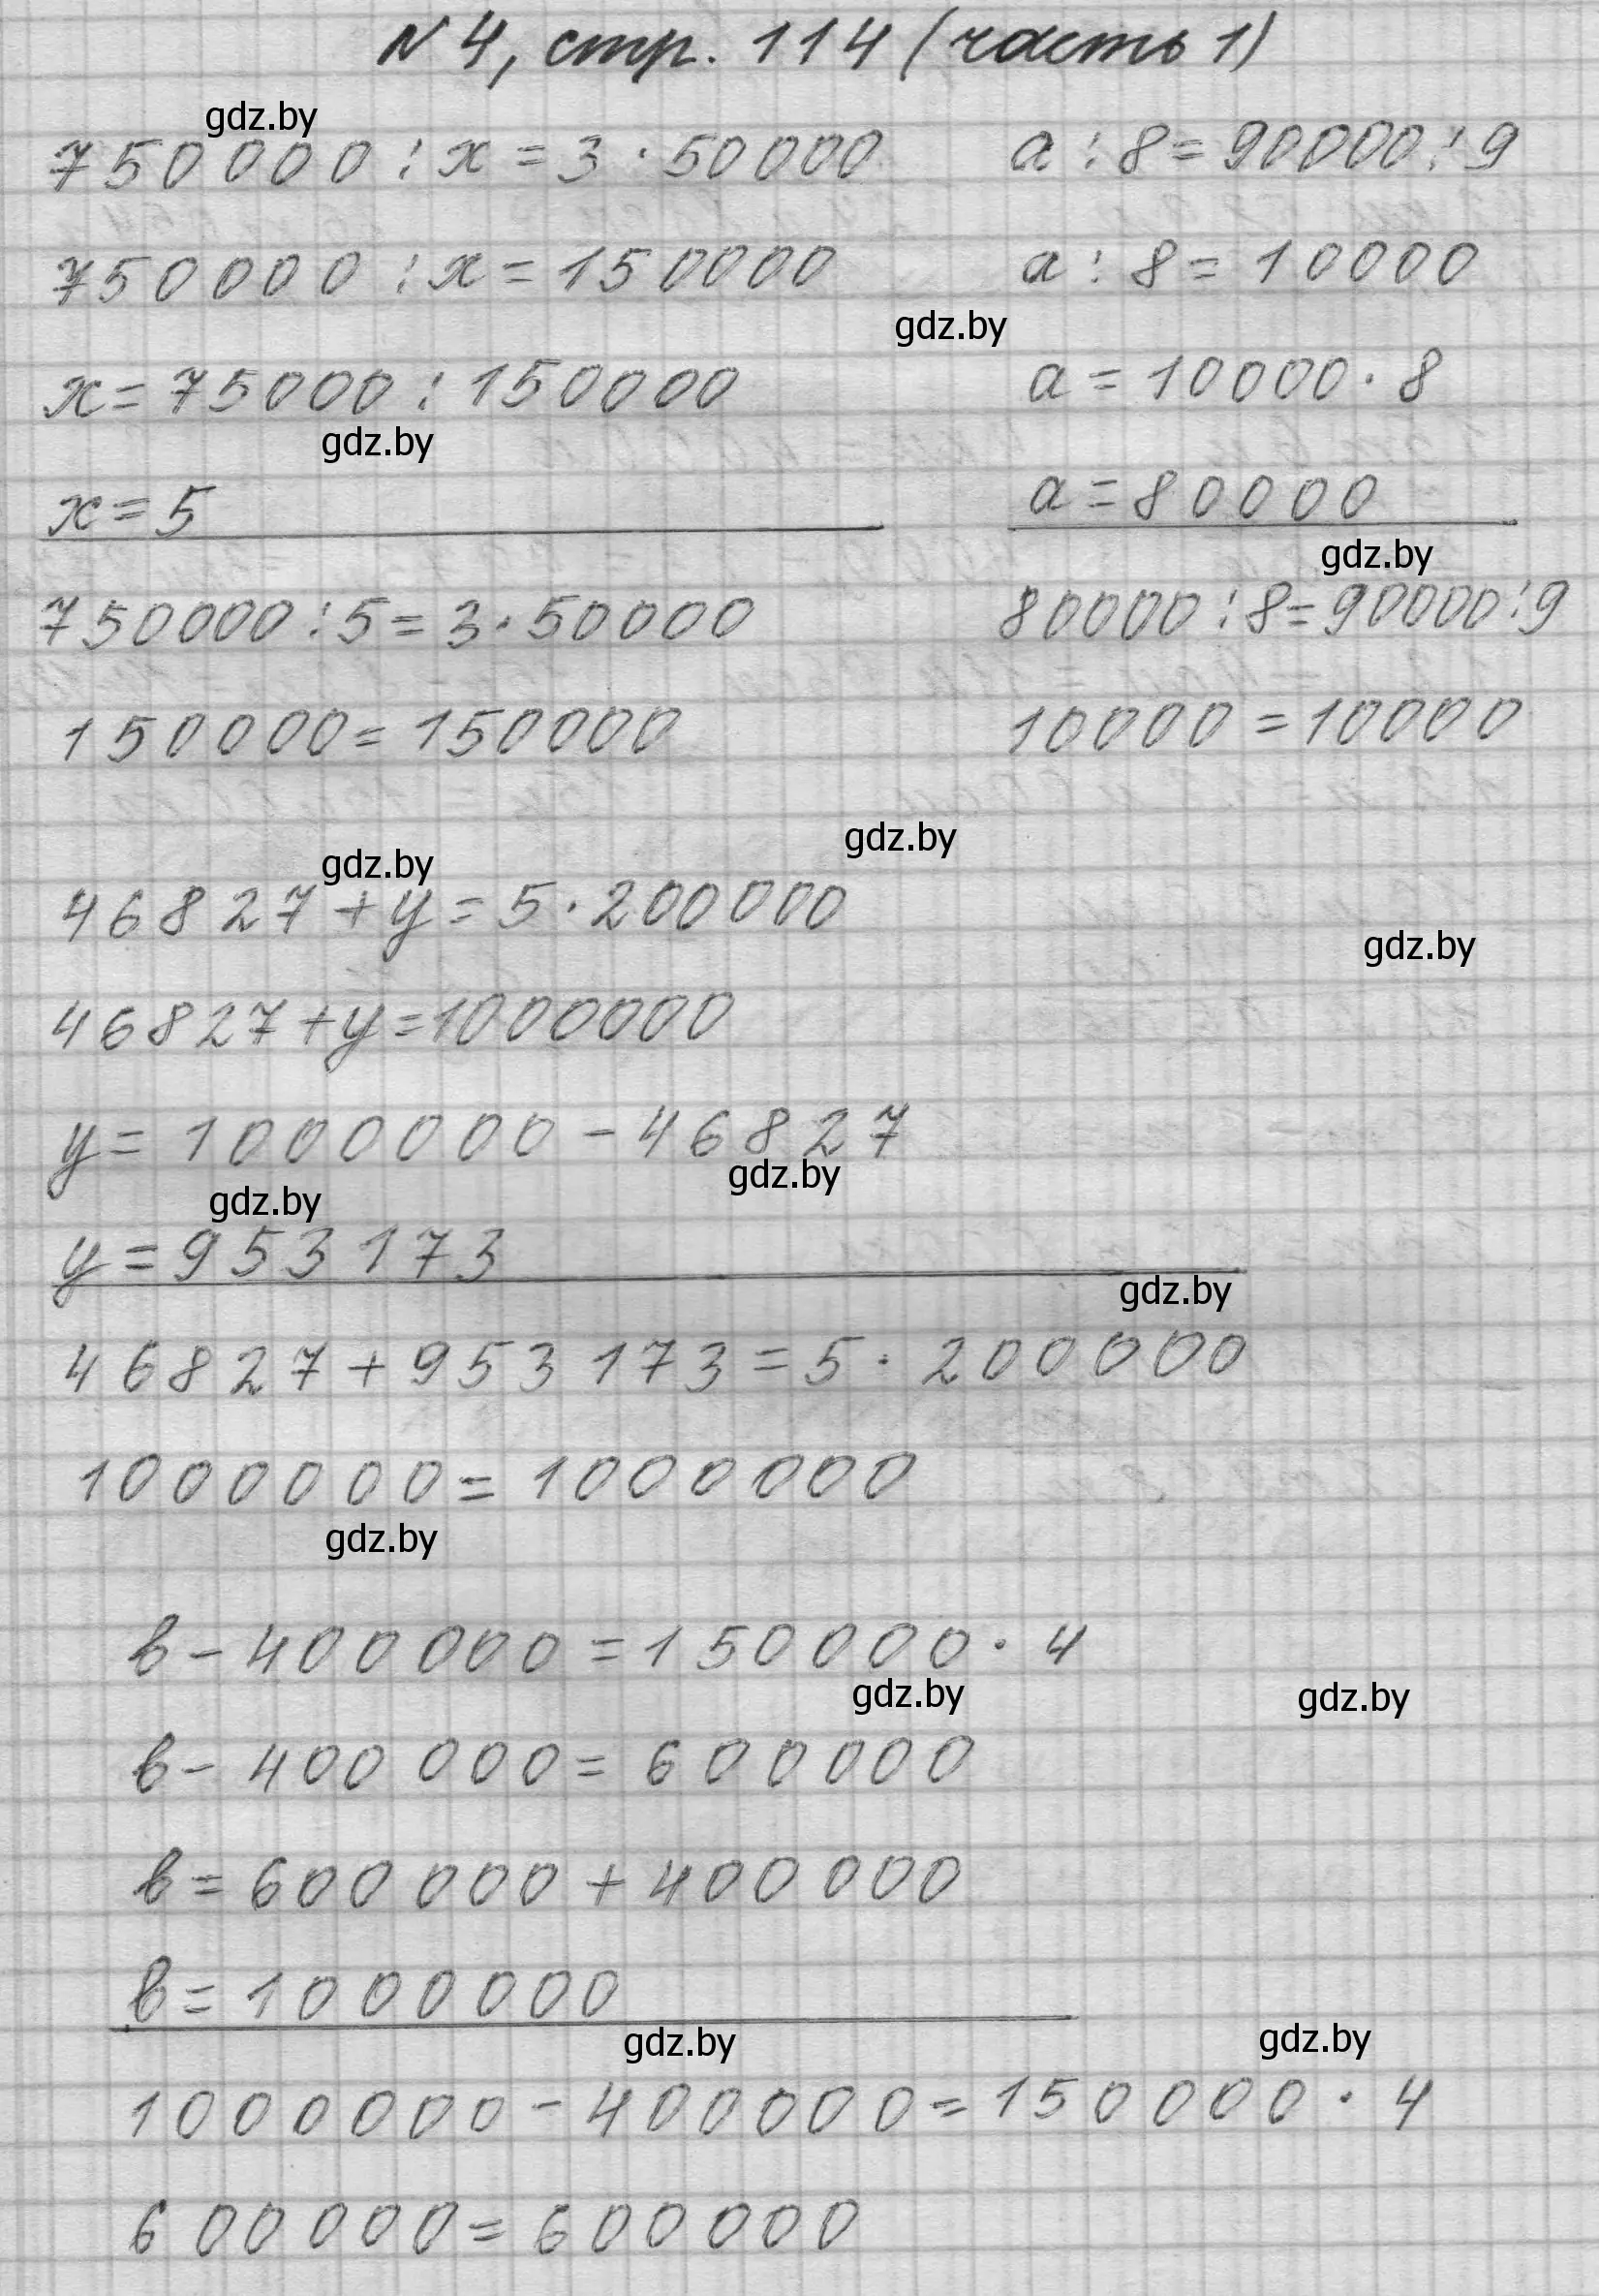 N 4, стр. 114 (часть 1)
gdz.by
750000 : x = 3 · 50000
750000 : x = 150000
x = 75000 : 150000
gdz.by
x = 5
750000 : 5 = 3 · 50000
150000 = 150000
a : 8 = 90000 : 9
a : 8 = 10000
gdz.by
a = 10000 · 8
a = 80000
gdz.by
80000 : 8 = 90000 : 9
10000 = 10000
gdz.by
gdz.by
46827 + y = 5 · 200000
gdz.by
46827 + y = 1000000
y = 1000000 - 46827
gdz.by
gdz.by
y = 953173
gdz.by
46827 + 953173 = 5 · 200000
1000000 = 1000000
gdz.by
в - 400000 = 150000 · 4
gdz.by
gdz.by
в - 400000 = 600000
в = 600000 + 400000
в = 1000000
gdz.by
gdz.by
1000000 - 400000 = 150000 · 4
600000 = 600000